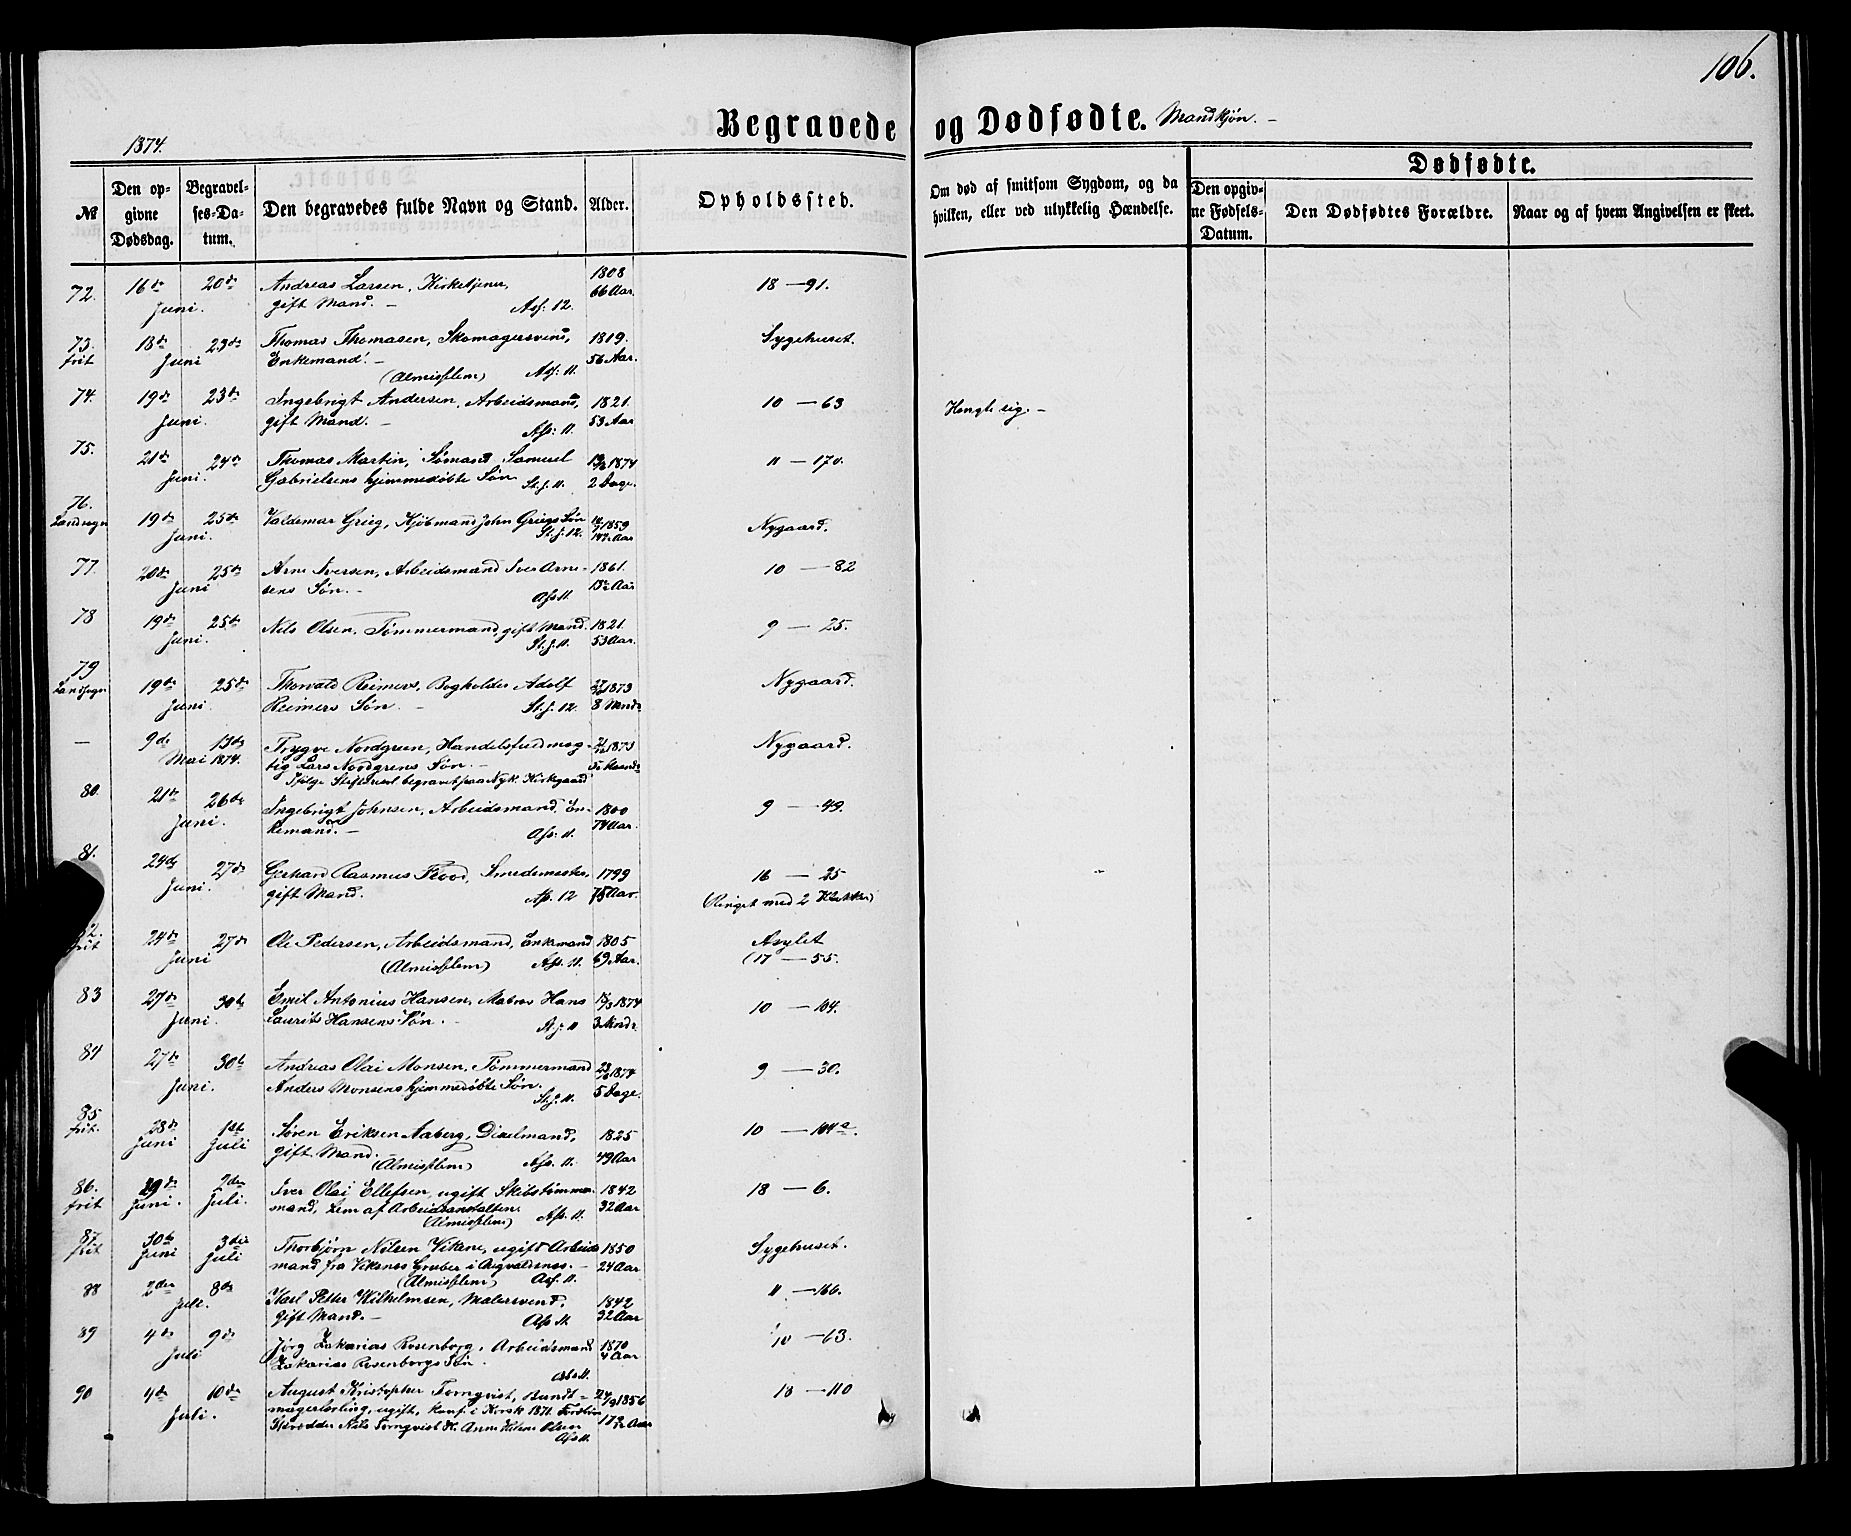 106.
Begravede og Dødfødte. Mandkjøn. -
1874.
№
Den opgivne Dødsdag.
Begravelses-Datum.
Den begravedes fulde Navn og Stand.
Alder.
Opholdssted.
Om død af smitsom Sygdom, og da hvilken, eller ved ulykkelig Hændelse.
Dødfødte.
Den opgivne Fødsels-Datum.
Den Dødfødtes Forældre.
Naar og af hvem Angivelsen er skeet.
72. 16de 20de Andreas Larsen, Kirketjener, 1808 18 — 91.
Juni. gift Mand. — Ass. 12. 66 Aar.
73. 18de 23de Thomas Thomasen, Skomagersvend, 1819. Sygehuset.
frit Juni Enkemand. — 56 Aar.
(Almisselem) Ass. 11.
74. 19de 23de Ingebrigt Andersen, Arbeidsmand, 1821. 10 — 63 Hengte sig. —
Juni. gift Mand. — 53 Aar
Ass. 11.
75. 21de 24de Thomas Martin, Sømand Samuel 19/6 1874 11 — 170.
Juni. Gabrielsens hjemmedøbte Søn St.J. 11. 2 Dage.
76. 19de 25de Valdemar Grieg, Kjøbmand John Griegs Søn 1859 Nygaard.
Landsogn Juni. St.J. 12. Aar
77. 20de 25de Arne Iversen, Arbeidsmand Iver Arne- 1861. 10 — 82
Juni sens Søn. — Ass 11. Aar
78 19de 25de Nils Olsen, Tømmermand, gift Mand. 1821. 9 — 25.
Juni. St.J. 11. 53 Aar.
79 19de 25de Thorvald Reimers, Bogholder Adolf 1873 Nygaard.
Landsogn Juni. Reimers Søn. — St.J. 12. 8 Mndr
— 9de 13de Trygve Nordgreen, Handelsfuldmæg- 1873 Nygaard.
Mai 1874. tig Lars Nordgrens Søn. — Maaneder
Ifølge begravet paa Nyk. Kirkegaard
80. 21de 26de Ingebrigt Johnsen, Arbeidsmand, En- 1800 9 — 49.
Juni. kemand. — Ass. 11. 74 Aar.
81. 24de 27de Gerhard Rasmus Flood, Smedemester, 1799 16 — 25
Juni. gift Mand. Ass. 12 75 Aar. (Ringet med 2 Klokker)
82. 24de 27de Ole Pedersen, Arbeidsmand, Enkemand 1805 Asylet
frit Juni (Almisselem) Ass. 11. 69 Aar. (17 — 55.
83 27de 30te Emil Antonius Hansen, Matros Hans 1874 10 — 104.
Juni. Laurits Hansens Søn. — Ass. 11 3 Mndr.
84 27de 30te Andreas Olai Monsen, Tømmermand 23/6 1874 9 — 30.
Juni. Anders Monsens hjemmedøbte Søn. 5 Dage.
St.J. 11.
85 28de 1ste Søren Eriksen Aaberg, Dixelmand, 1825 10 — 104a.
frit. Juni Juli gift Mand. (Almisselem) Ass. 11. 49 Aar
86. 29de 2den Iver Olai Ellefsen, ugift Skibstømmer- 1842 18 — 6.
frit Juni. Juli. mand, Lem af Arbeidsanstalten. 32 Aar
(Almisselem) Ass. 11.
87. 30te 3die Thorbjørn Nilsen Vikene, ugift Arbeids- 1850 Sygehuset.
frit Juni Juli mand fra Viksnes Gruber i Augvaldsnes. — 24 Aar
(Almisselem) Ass. 11.
88 2den 8de Karl Petter Wilhelmsen, Malersvend, 1842 11 — 166.
Juli. gift Mand. — Ass 11. 32 Aar
89 4de 9de Jørg Zakarias Rosenborg, Arbeidsmand 1870 10 — 63.
Juli Zakarias Rosenborgs Søn. 4 Aar
Ass 11.
90 4de 10de August Kristopher Tornqvist, Bundt- 24/9 1856 18 — 110
Juli. magerlærling, ugift, konf. i Korsk 1871. 17 Aar
Skrædder Nils Tornqvist H. Anne Helene Olsen
Ass 11.